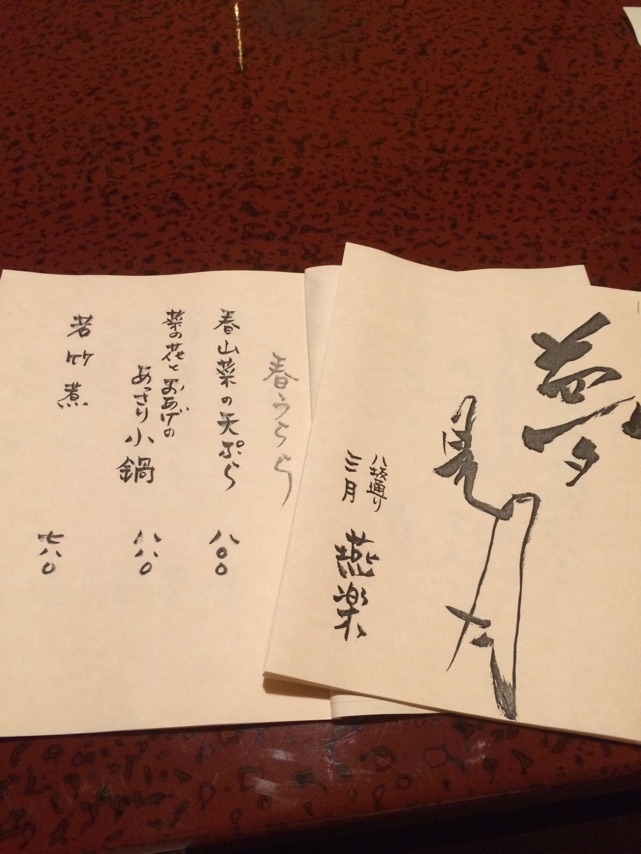 夢
見月
八坂通り
三月
燕楽
春うらら
春山菜の天ぷら 八〇〇
菜の花とおあげの
あっさり小鍋 八八〇
若竹煮 七八〇